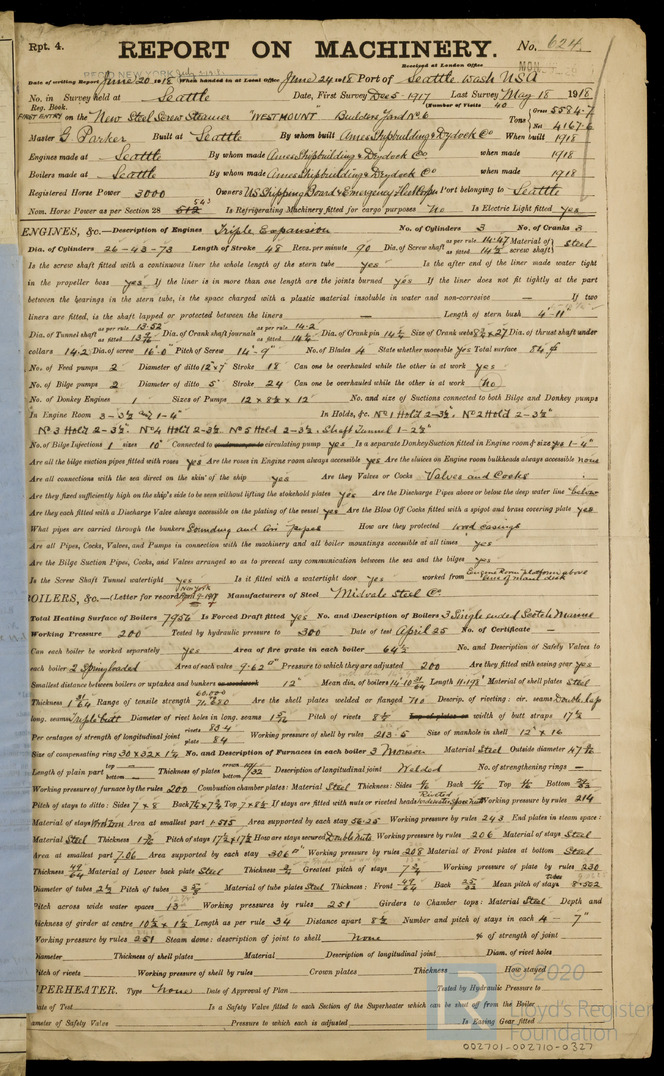 Rpt. 4.
REPORT ON MACHINERY.
No. 624
Received at London Office
RECD NEW YORK
MON.
Date of writing Report June 20 1918 When handed in at Local Office June 24 1918 Port of Seattle Wash USA
No. in Survey held at Seattle Date, First Survey Dec 5-1917 Last Survey May 18 1918
Reg. Book. (Number of Visits 40
FIRST ENTRY on the New Steel Screw Steamer "WESTMOUNT" Builders Yard No 6 Tons Gross 5584.7 Net 4167.6
Master G. Parker Built at Seattle By whom built Ames Shipbuilding & Drydock Co When built 1918
Engines made at Seattle By whom made Ames Shipbuilding & Drydock Co. when made 1918
Boilers made at Seattle By whom made Ames Shipbuilding & Drydock Co when made 1918
Registered Horse Power 3000 Owners US Shipping Board & Emergency Port belonging to Seattle
Nom. Horse Power as per Section 28 543 Is Refrigerating Machinery fitted for cargo purposes No Is Electric Light fitted yes
ENGINES, &c.—Description of Engines Triple Expansion No. of Cylinders 3 No. of Cranks 3
Dia. of Cylinders 26-43-73 Length of Stroke 48 Revs. per minute 90 Dia. of Screw shaft as per rule 14.47 as fitted 14¾ Material of screw shaft steel
Is the screw shaft fitted with a continuous liner the whole length of the stern tube yes Is the after end of the liner made water tight
in the propeller boss yes If the liner is in more than one length are the joints burned yes If the liner does not fit tightly at the part
between the bearings in the stern tube, is the space charged with a plastic material insoluble in water and non-corrosive — If two
liners are fitted, is the shaft lapped or protected between the liners — Length of stern bush 4'-11"
Dia. of Tunnel shaft as per rule 13.52 as fitted Dia. of Crank shaft journals as per rule 14.2 as fitted Dia. of Crank pin Size of Crank webs Dia. of thrust shaft under
collars 14.2 Dia. of screw 16'-0" Pitch of Screw 14'-9" No. of Blades 4 State whether moveable yes Total surface 84 ft
No. of Feed pumps 2 Diameter of ditto 12 x 7 Stroke 18 Can one be overhauled while the other is at work yes
No. of Bilge pumps 2 Diameter of ditto 5" Stroke 24 Can one be overhauled while the other is at work (No)
No. of Donkey Engines 1 Sizes of Pumps 12 x 8½ x 12 No. and size of Suctions connected to both Bilge and Donkey pumps
In Engine Room 3-3½" 1-4" In Holds, &c. No 1 Hold 2-3½". No 2 Hold 2-3½"
No 3 Hold 2-3½". No 4 Hold 2-3½ No 5 Hold 2-3½. Shaft Tunnel 1-2½"
No. of Bilge Injections 1 sizes 10" Connected to circulating pump yes Is a separate Donkey Suction fitted in Engine room & size yes 1-4"
Are all the bilge suction pipes fitted with roses yes Are the roses in Engine room always accessible yes Are the sluices on Engine room bulkheads always accessible none
Are all connections with the sea direct on the skin of the ship yes Are they Valves or Cocks Valves and Cocks
Are they fixed sufficiently high on the ship's side to be seen without lifting the stokehold plates yes Are the Discharge Pipes above or below the deep water line below
Are they each fitted with a Discharge Valve always accessible on the plating of the vessel yes Are the Blow Off Cocks fitted with a spigot and brass covering plate yes
What pipes are carried through the bunkers Sounding and air pipes How are they protected wood casings
Are all Pipes, Cocks, Valves, and Pumps in connection with the machinery and all boiler mountings accessible at all times yes
Are the Bilge Suction Pipes, Cocks, and Valves arranged so as to prevent any communication between the sea and the bilges yes
Is the Screw Shaft Tunnel watertight yes Is it fitted with a watertight door yes worked from Engine Room platform above line of main deck
BOILERS, &c.—(Letter for record New York April 9-1917 Manufacturers of Steel Midvale Steel Co.
Total Heating Surface of Boilers 7956 Is Forced Draft fitted yes No. and Description of Boilers 3 Single ended Scotch Marine
Working Pressure 200 Tested by hydraulic pressure to 300 Date of test April 25 No. of Certificate —
Can each boiler be worked separately yes Area of fire grate in each boiler 64½ No. and Description of Safety Valves to
each boiler 2 Springloaded Area of each valve 9.62 □" Pressure to which they are adjusted 200 Are they fitted with easing gear yes
Smallest distance between boilers or uptakes and bunkers 12" Mean dia. of boilers Length Material of shell plates Steel
Thickness 1 31/64 Range of tensile strength 60,000 71,680 Are the shell plates welded or flanged no Descrip. of riveting: cir. seams Double lap
long. seams Triple butt Diameter of rivet holes in long. seams Pitch of rivets Lap of plates or width of butt straps 17½
Per centages of strength of longitudinal joint rivets 83.4 plate 84 Working pressure of shell by rules 213.5 Size of manhole in shell 12" x 16
Size of compensating ring 30 x 32 x 1¼ No. and Description of Furnaces in each boiler 3 Morison Material Steel Outside diameter
Length of plain part top — bottom — Thickness of plates crown bottom Description of longitudinal joint Welded No. of strengthening rings —
Working pressure of furnace by the rules 200 Combustion chamber plates: Material Steel Thickness: Sides Back Top Bottom
Pitch of stays to ditto: Sides 7 x 8 Back Top If stays are fitted with nuts or riveted heads Working pressure by rules 214
Material of stays Area at smallest part 1.515 Area supported by each stay 56.25 Working pressure by rules 243 End plates in steam space:
Material Steel Thickness Pitch of stays How are stays secured Double Nuts Working pressure by rules 206 Material of stays Steel
Area at smallest part 7.06 Area supported by each stay 306 □" Working pressure by rules 208 Material of Front plates at bottom Steel
Thickness Material of Lower back plate Steel Thickness Greatest pitch of stays Working pressure of plate by rules 230
Diameter of tubes 2½ Pitch of tubes Material of tube plates Steel Thickness: Front Back Mean pitch of stays 8.502
Pitch across wide water spaces 13 Working pressures by rules 251 Girders to Chamber tops: Material Steel Depth and
thickness of girder at centre Length as per rule 34 Distance apart 8½ Number and pitch of stays in each 4 — 7"
Working pressure by rules 251 Steam dome: description of joint to shell None % of strength of joint
Diameter Thickness of shell plates Material Description of longitudinal joint Diam. of rivet holes
Pitch of rivets Working pressure of shell by rules Crown plates Thickness How stayed
SUPERHEATER. Type None Date of Approval of Plan Tested by Hydraulic Pressure to
Date of Test Is a Safety Valve fitted to each Section of the Superheater which can be shut off from the Boiler
Diameter of Safety Valve Pressure to which each is adjusted Is Easing Gear fitted
© 2020
Lloyd's Register
Foundation
002701-002710-0327